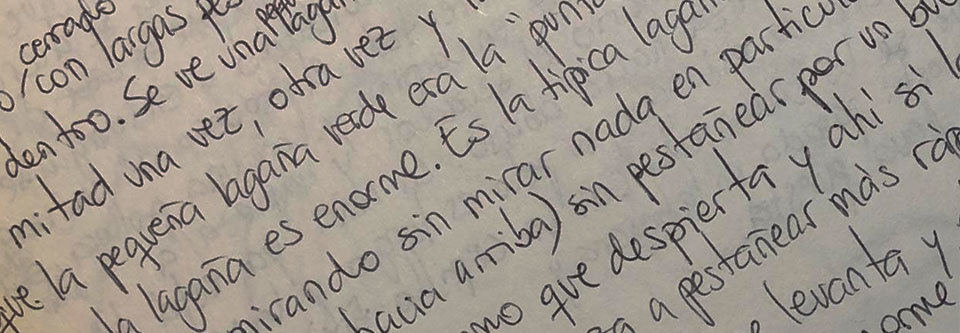 cerrado
o/con largas
dentro. Se ve una
mitad una vez, otra vez y
que la pequeña lagaña verde era la "pun
la lagaña es enorme. Es la típica lagañ
mirando sin mirar nada en particu
hacia arriba) sin pestañear por un bu
que despierta y ahí sí
a pestañear más ráp
levanta y